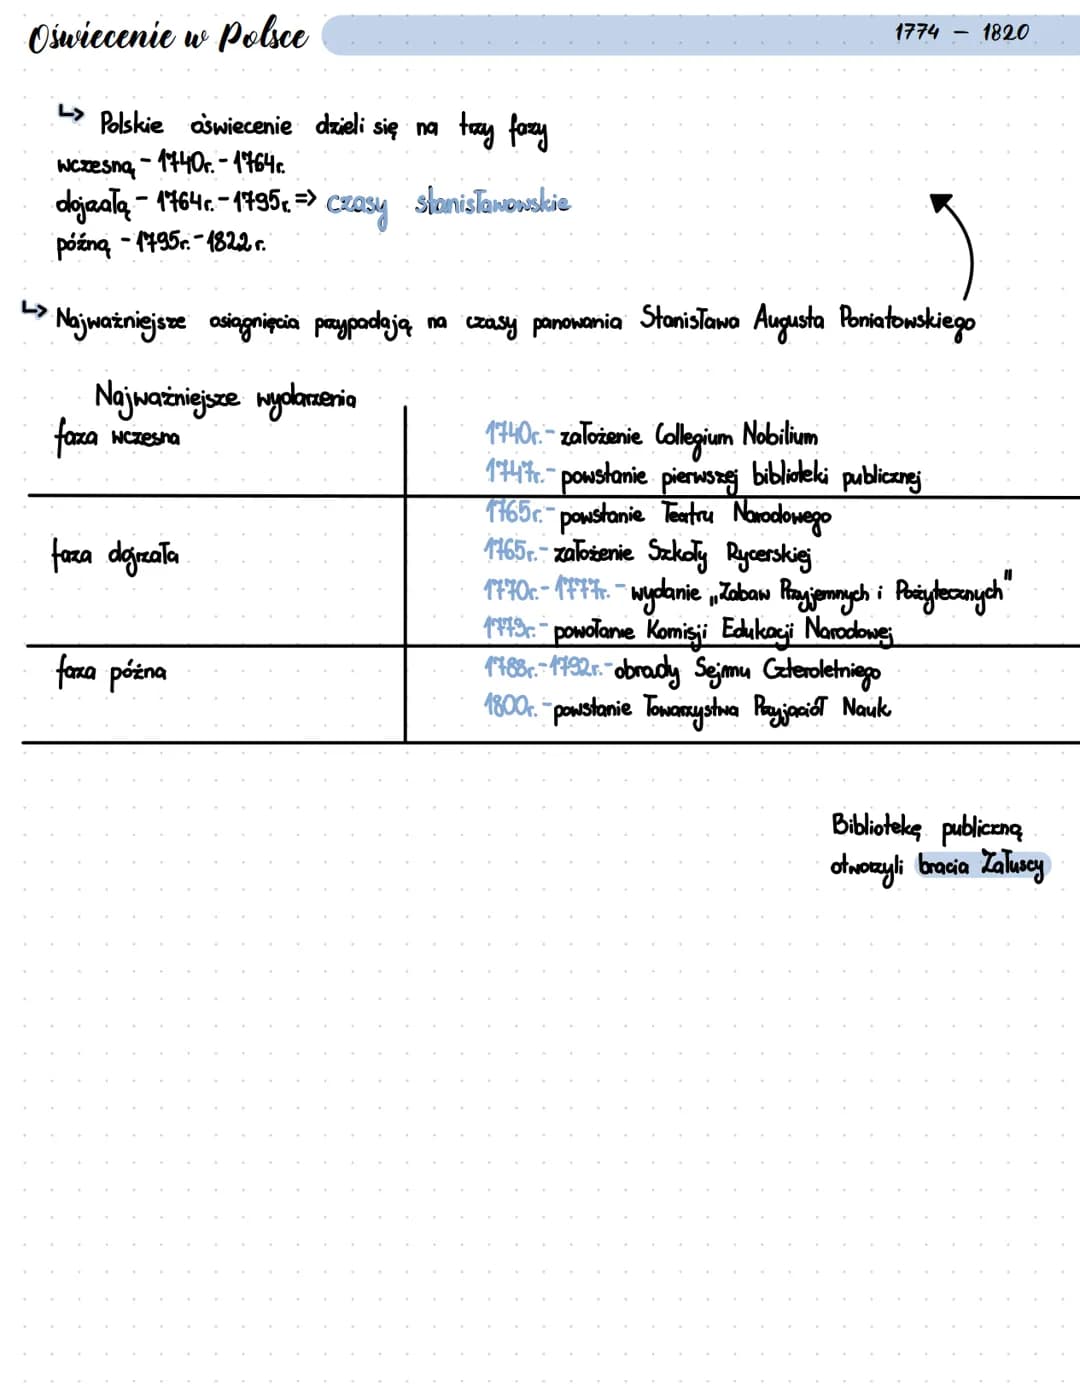 Oświecenie w Polsce 1774 – 1820
↳ Polskie oświecenie dzieli się na trzy fazy
wczesną - 1740r. - 1764r.
dojrzałą - 1764r. - 1795r. => czasy stanisławowskie
późną - 1795r. - 1822r.
↳ Najważniejsze osiągnięcia przypadają na czasy panowania Stanisława Augusta Poniatowskiego
Najważniejsze wydarzenia
faza wczesna
1740r. - założenie Collegium Nobilium
1747r. - powstanie pierwszej biblioteki publicznej
faza dojrzała
1765r. - powstanie Teatru Narodowego
1765r. - założenie Szkoły Rycerskiej
1770r. - 1777r. - wydanie „Zabaw Przyjemnych i Pożytecznych"
1773r. - powołanie Komisji Edukacji Narodowej
faza późna
1788r. - 1792r. - obrady Sejmu Czteroletniego
1800r. - powstanie Towarzystwa Przyjaciół Nauk
Bibliotekę publiczną
otworzyli bracia Załuscy